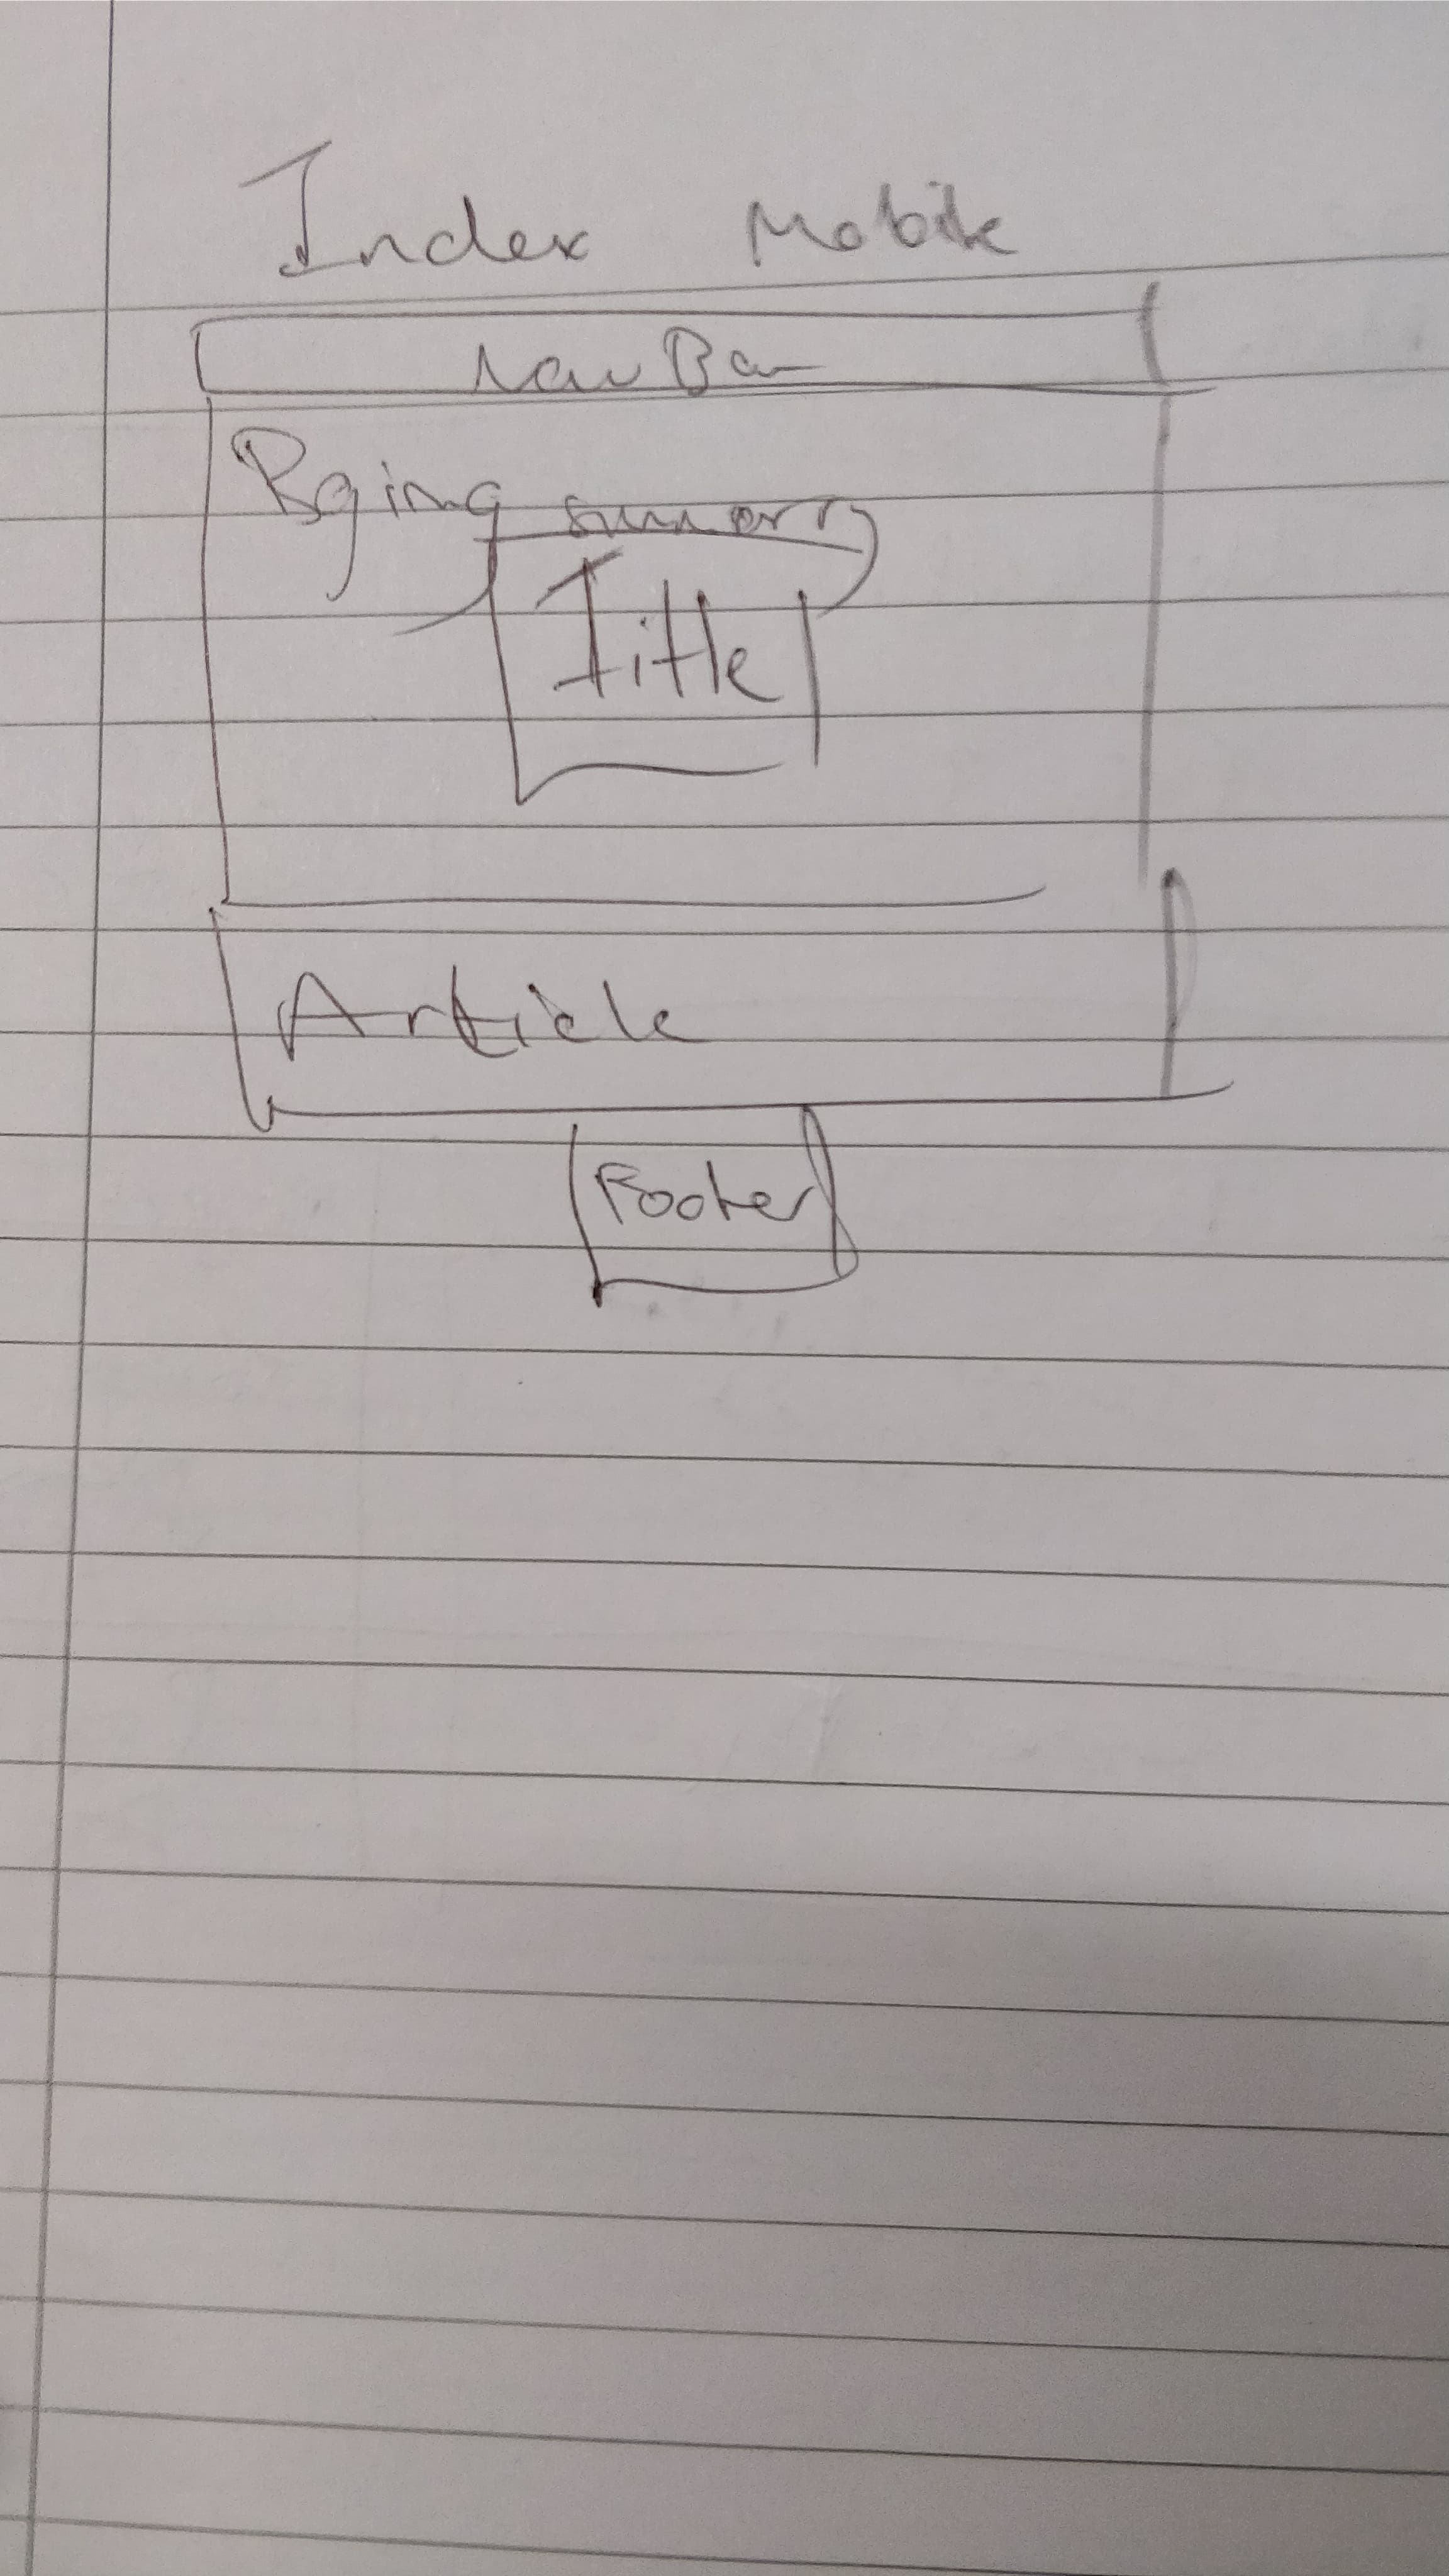 Index Mobile
Nav Bar
Bging summory
Title
Article
Footer